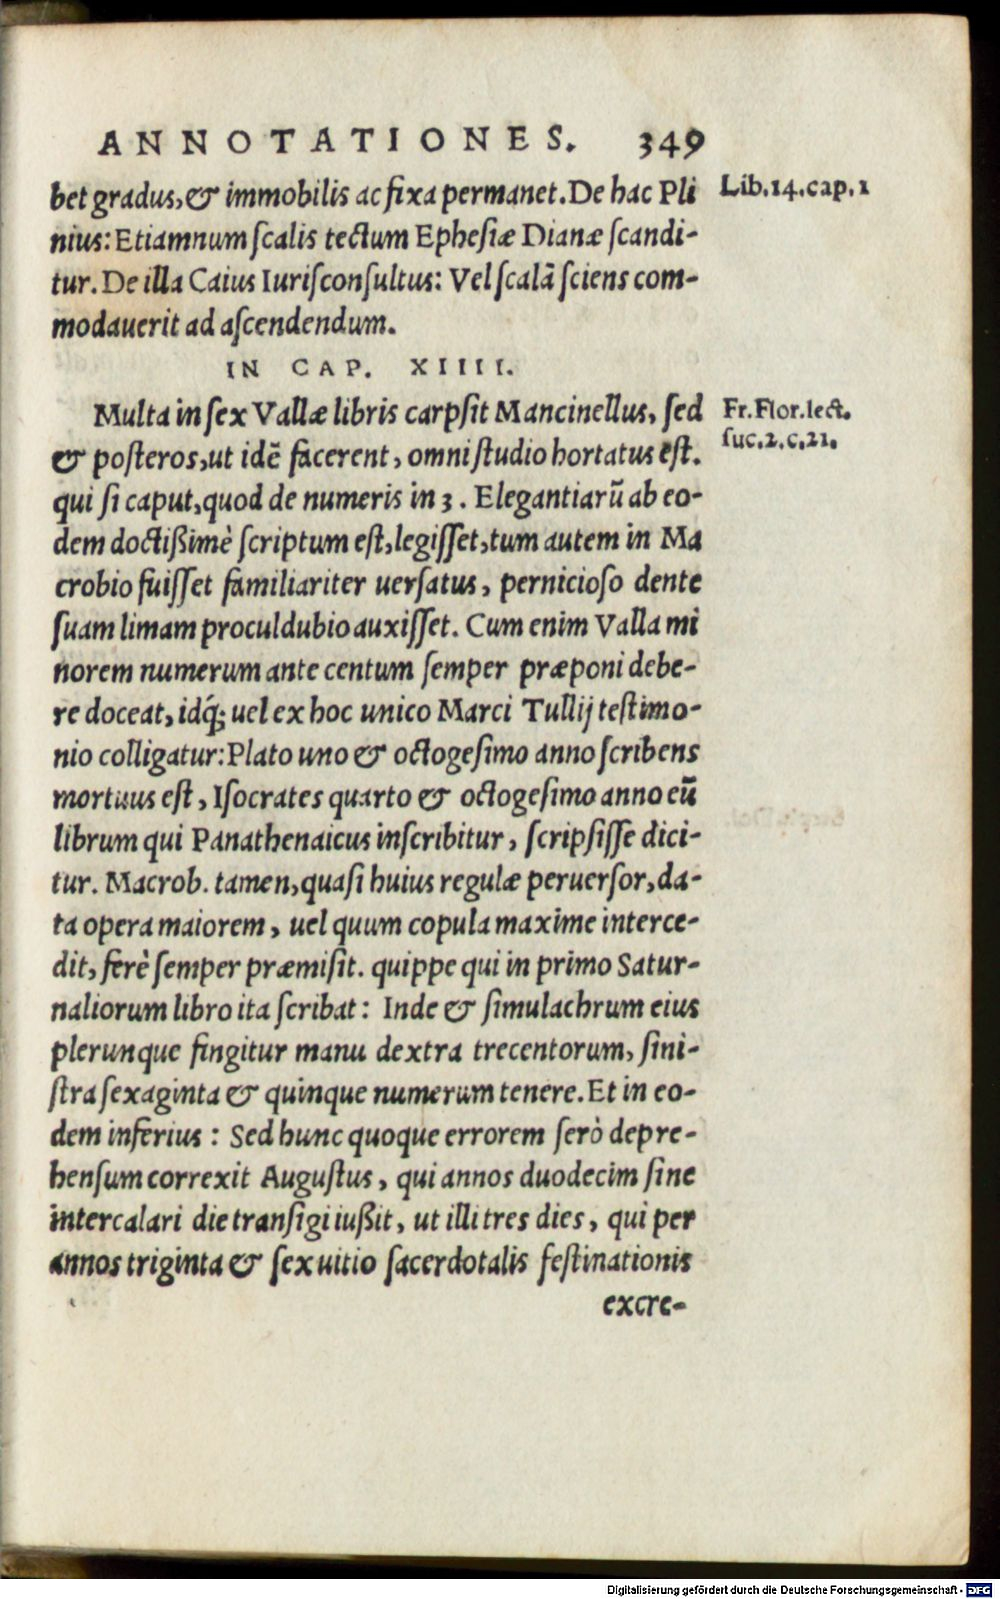 ANNOTATIONES. 349
bet gradus, & immobilis ac fixa permanet. De hac Pli
nius: Etiamnum ſcalis tectum Epheſiæ Dianæ ſcandi-
tur. De illa Caius Iuriſconſultus: Vel ſcalã ſciens com-
modauerit ad aſcendendum.
Lib.14.cap.1
IN CAP. XIIII.
Multa in ſex Vallæ libris carpſit Mancinellus, ſed
& poſteros, ut idẽ facerent, omni ſtudio hortatus eſt.
qui ſi caput, quod de numeris in 3. Elegantiarũ ab eo-
dem doctißimè ſcriptum eſt, legiſſet, tum autem in Ma
crobio fuiſſet familiariter uerſatus, pernicioſo dente
ſuam limam proculdubio auxiſſet. Cum enim Valla mi
norem numerum ante centum ſemper præponi debe-
re doceat, idq́; uel ex hoc unico Marci Tullij teſtimo-
nio colligatur: Plato uno & octogeſimo anno ſcribens
mortuus eſt, Iſocrates quarto & octogeſimo anno eũ
librum qui Panathenaicus inſcribitur, ſcripſiſſe dici-
tur. Macrob. tamen, quaſi huius regulæ peruerſor, da-
ta opera maiorem, uel quum copula maxime interce-
dit, ferè ſemper præmiſit. quippe qui in primo Satur-
naliorum libro ita ſcribat: Inde & ſimulachrum eius
plerunque fingitur manu dextra trecentorum, ſini-
ſtra ſexaginta & quinque numerum tenere. Et in eo-
dem inferius: Sed hunc quoque errorem ſerò depre-
henſum correxit Auguſtus, qui annos duodecim ſine
intercalari die tranſigi iußit, ut illi tres dies, qui per
annos triginta & ſex uitio ſacerdotalis feſtinationis
excre-
Fr.Flor.lect.
ſuc.2.c.21.
Digitalisierung gefördert durch die Deutsche Forschungsgemeinschaft - DFG